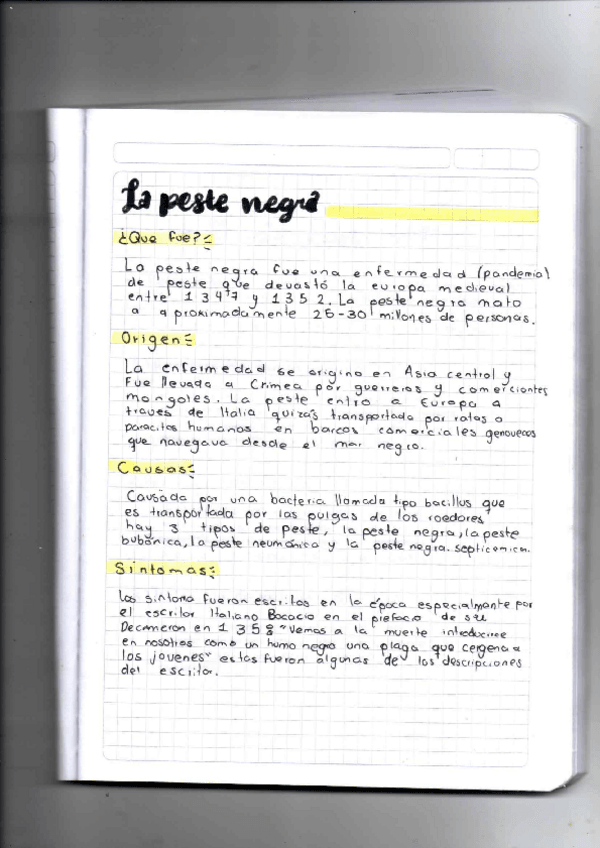 La peste negra
¿Que fue?:
La peste negra fue una enfermedad (pandemia)
de peste que devastó la europa medieval
entre 1347 y 1352. La peste negra mato
a aproximadamente 25-30 millones de personas.
Origen:
La enfermedad se origino en Asia central y
Fue llevada a Crimea por guerreros y comerciantes
mongoles. La peste entro a Europa a
traves de Italia quizás transportada por ratas o
paracitos humanos en barcos comerciales genoveces
que navegava desde el mar negro.
Causas:
Causada por una bacteria llamada tipo bacillus que
es transportada por las pulgas de los roedores
hay 3 tipos de peste, la peste negra, la peste
bubónica, la peste neumónica y la peste negra. septicemica.
Sintomas:
Los sintoma fueron escritos en la época especialmente por
el escritor Italiano Bocacio en el prefacio de su
Decameron en 1358 "Vemos a la muerte introducirse
en nosotros como un humo negro una plaga que cergena a
los jovenes" estas fueron algunas de las descripciones
del escritor.